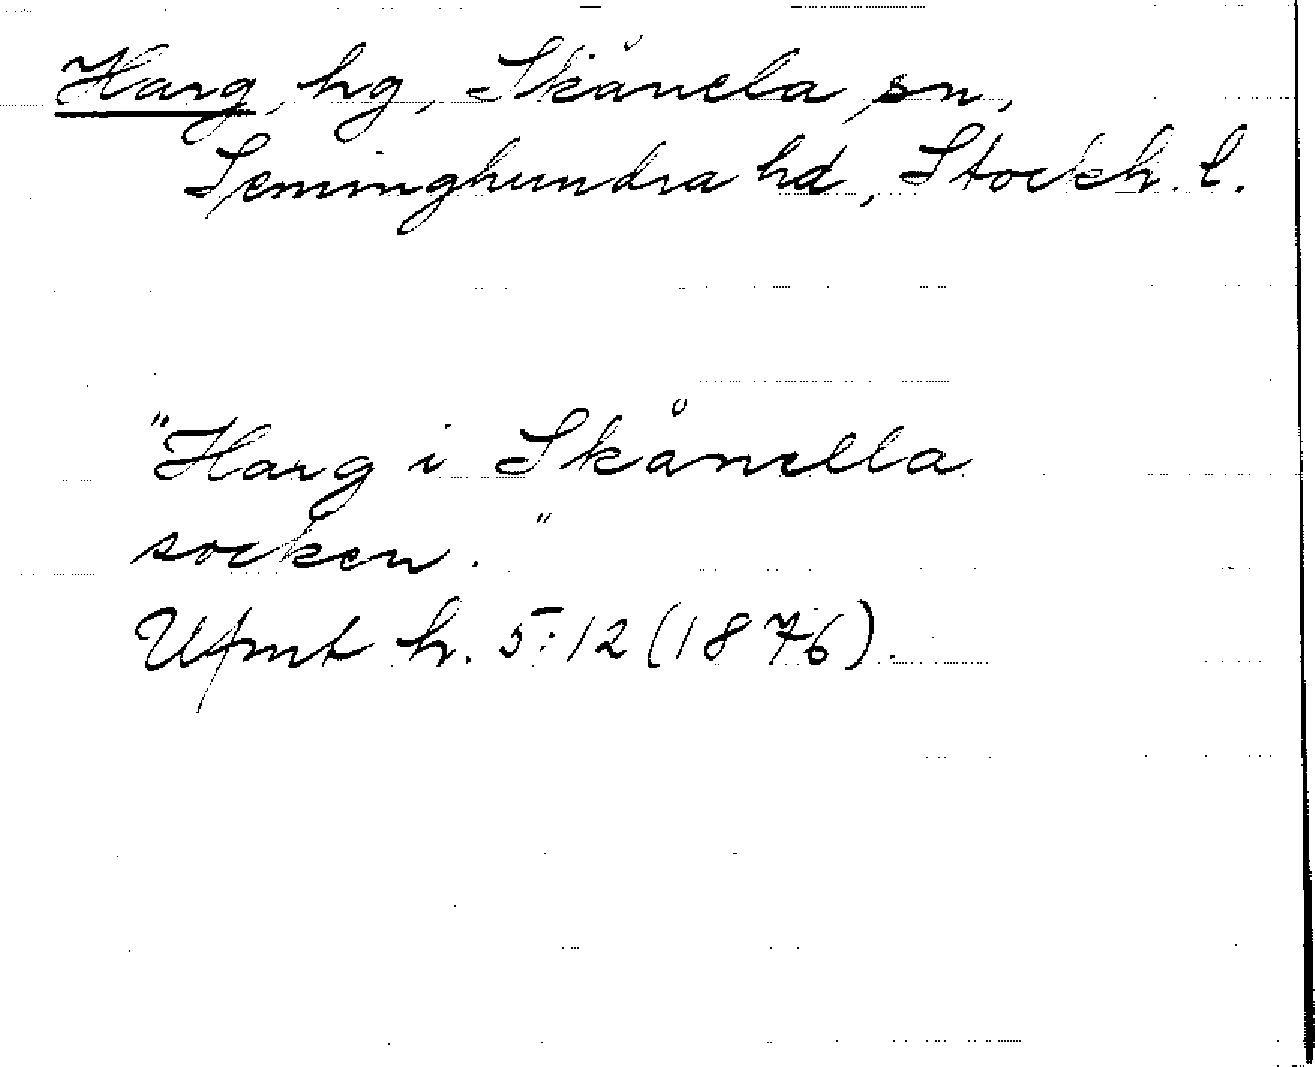 Harg, hg, Skånela sn,
Seminghundra hd, Stockh. l.
"Harg i Skånella
socken."
Upmt h. 5:12 (1876).